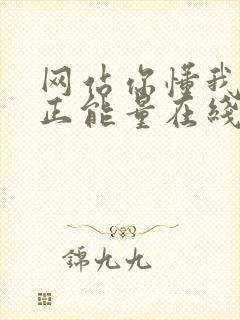 网站你懂我
正能量在线
锦九九